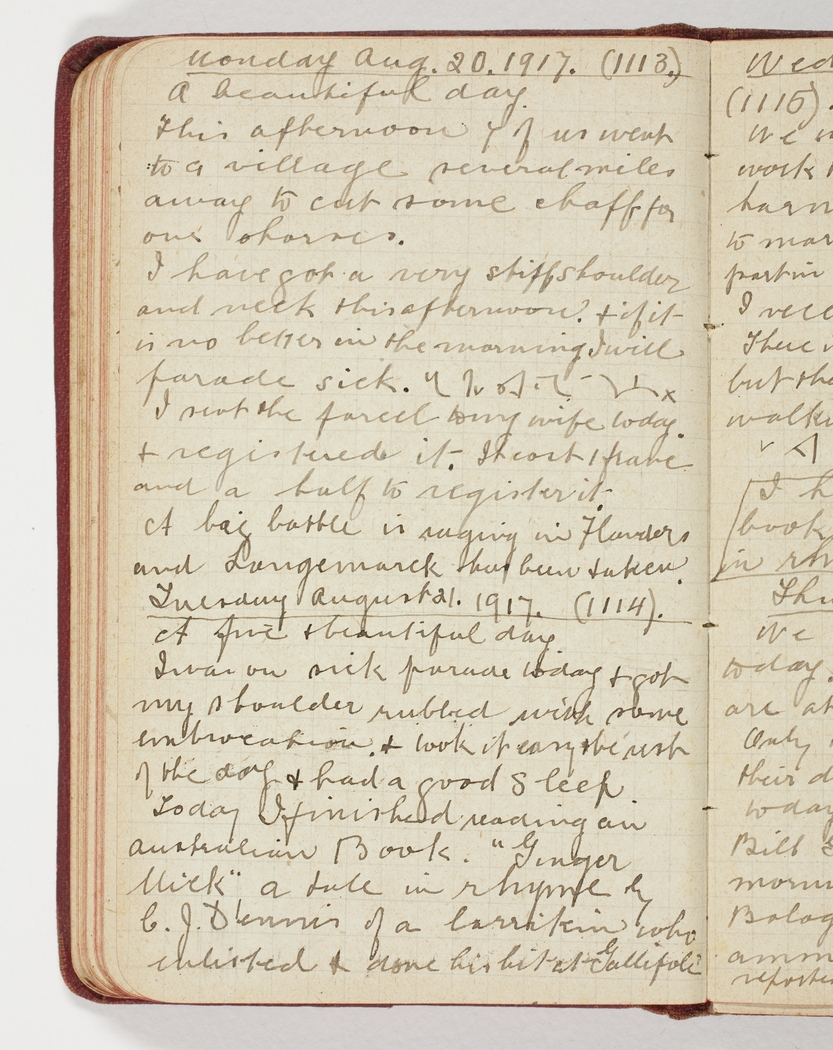 Monday Aug. 20. 1917. (1113.)
A beautiful day.
This afternoon 4 of us went
to a village several miles
away to cut some chaff for
our horses.
I have got a very stiff shoulder
and neck this afternoon. & if it
is no better in the morning I will
parade sick.
I sent the parcel to my wife today.
& registered it. It cost 1 franc
and a half to register it.
A big battle is raging in Flanders
and Langemarck has been taken.
Tuesday August 21. 1917. (1114).
A fine & beautiful day
I was on sick parade today & got
my shoulder rubbed with some
embrocation. & took it easy the rest
of the day & had a good sleep
Today I finished reading an
australian Book. "Ginger
Mick" a tale in rhyme by
C. J. Dennis of a larrikin who
enlisted & done his bit at Gallipoli
Wed
(1115).
We
work
harn
to mar
part in
I rece
There
but the
walk
I h
book
in
Thu
We
today.
are at
Only
their d
today
Bill
morn
Bolog
amm
reporte